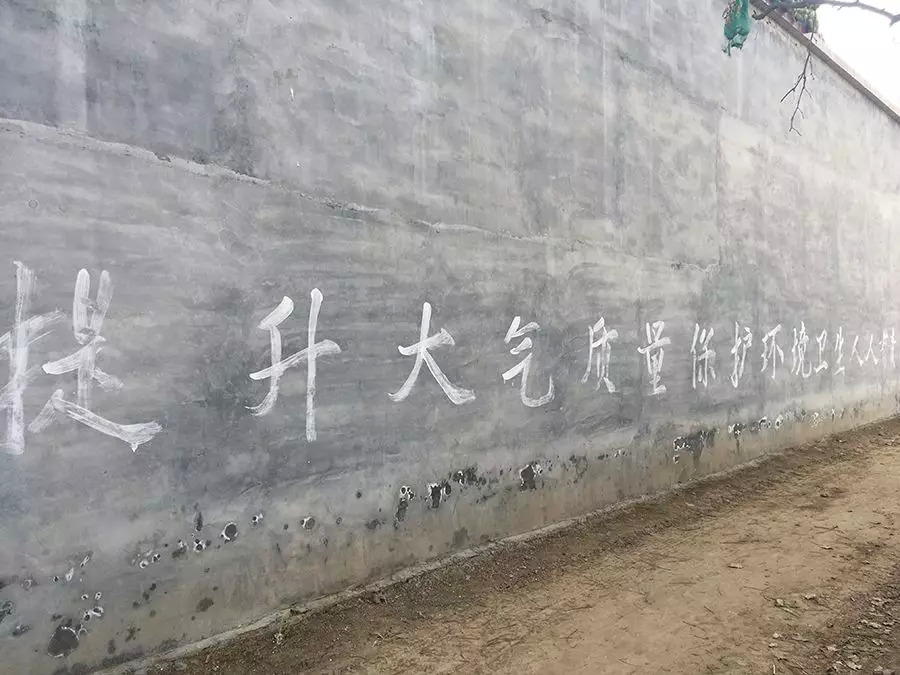 提升大气质量保护环境卫生人人